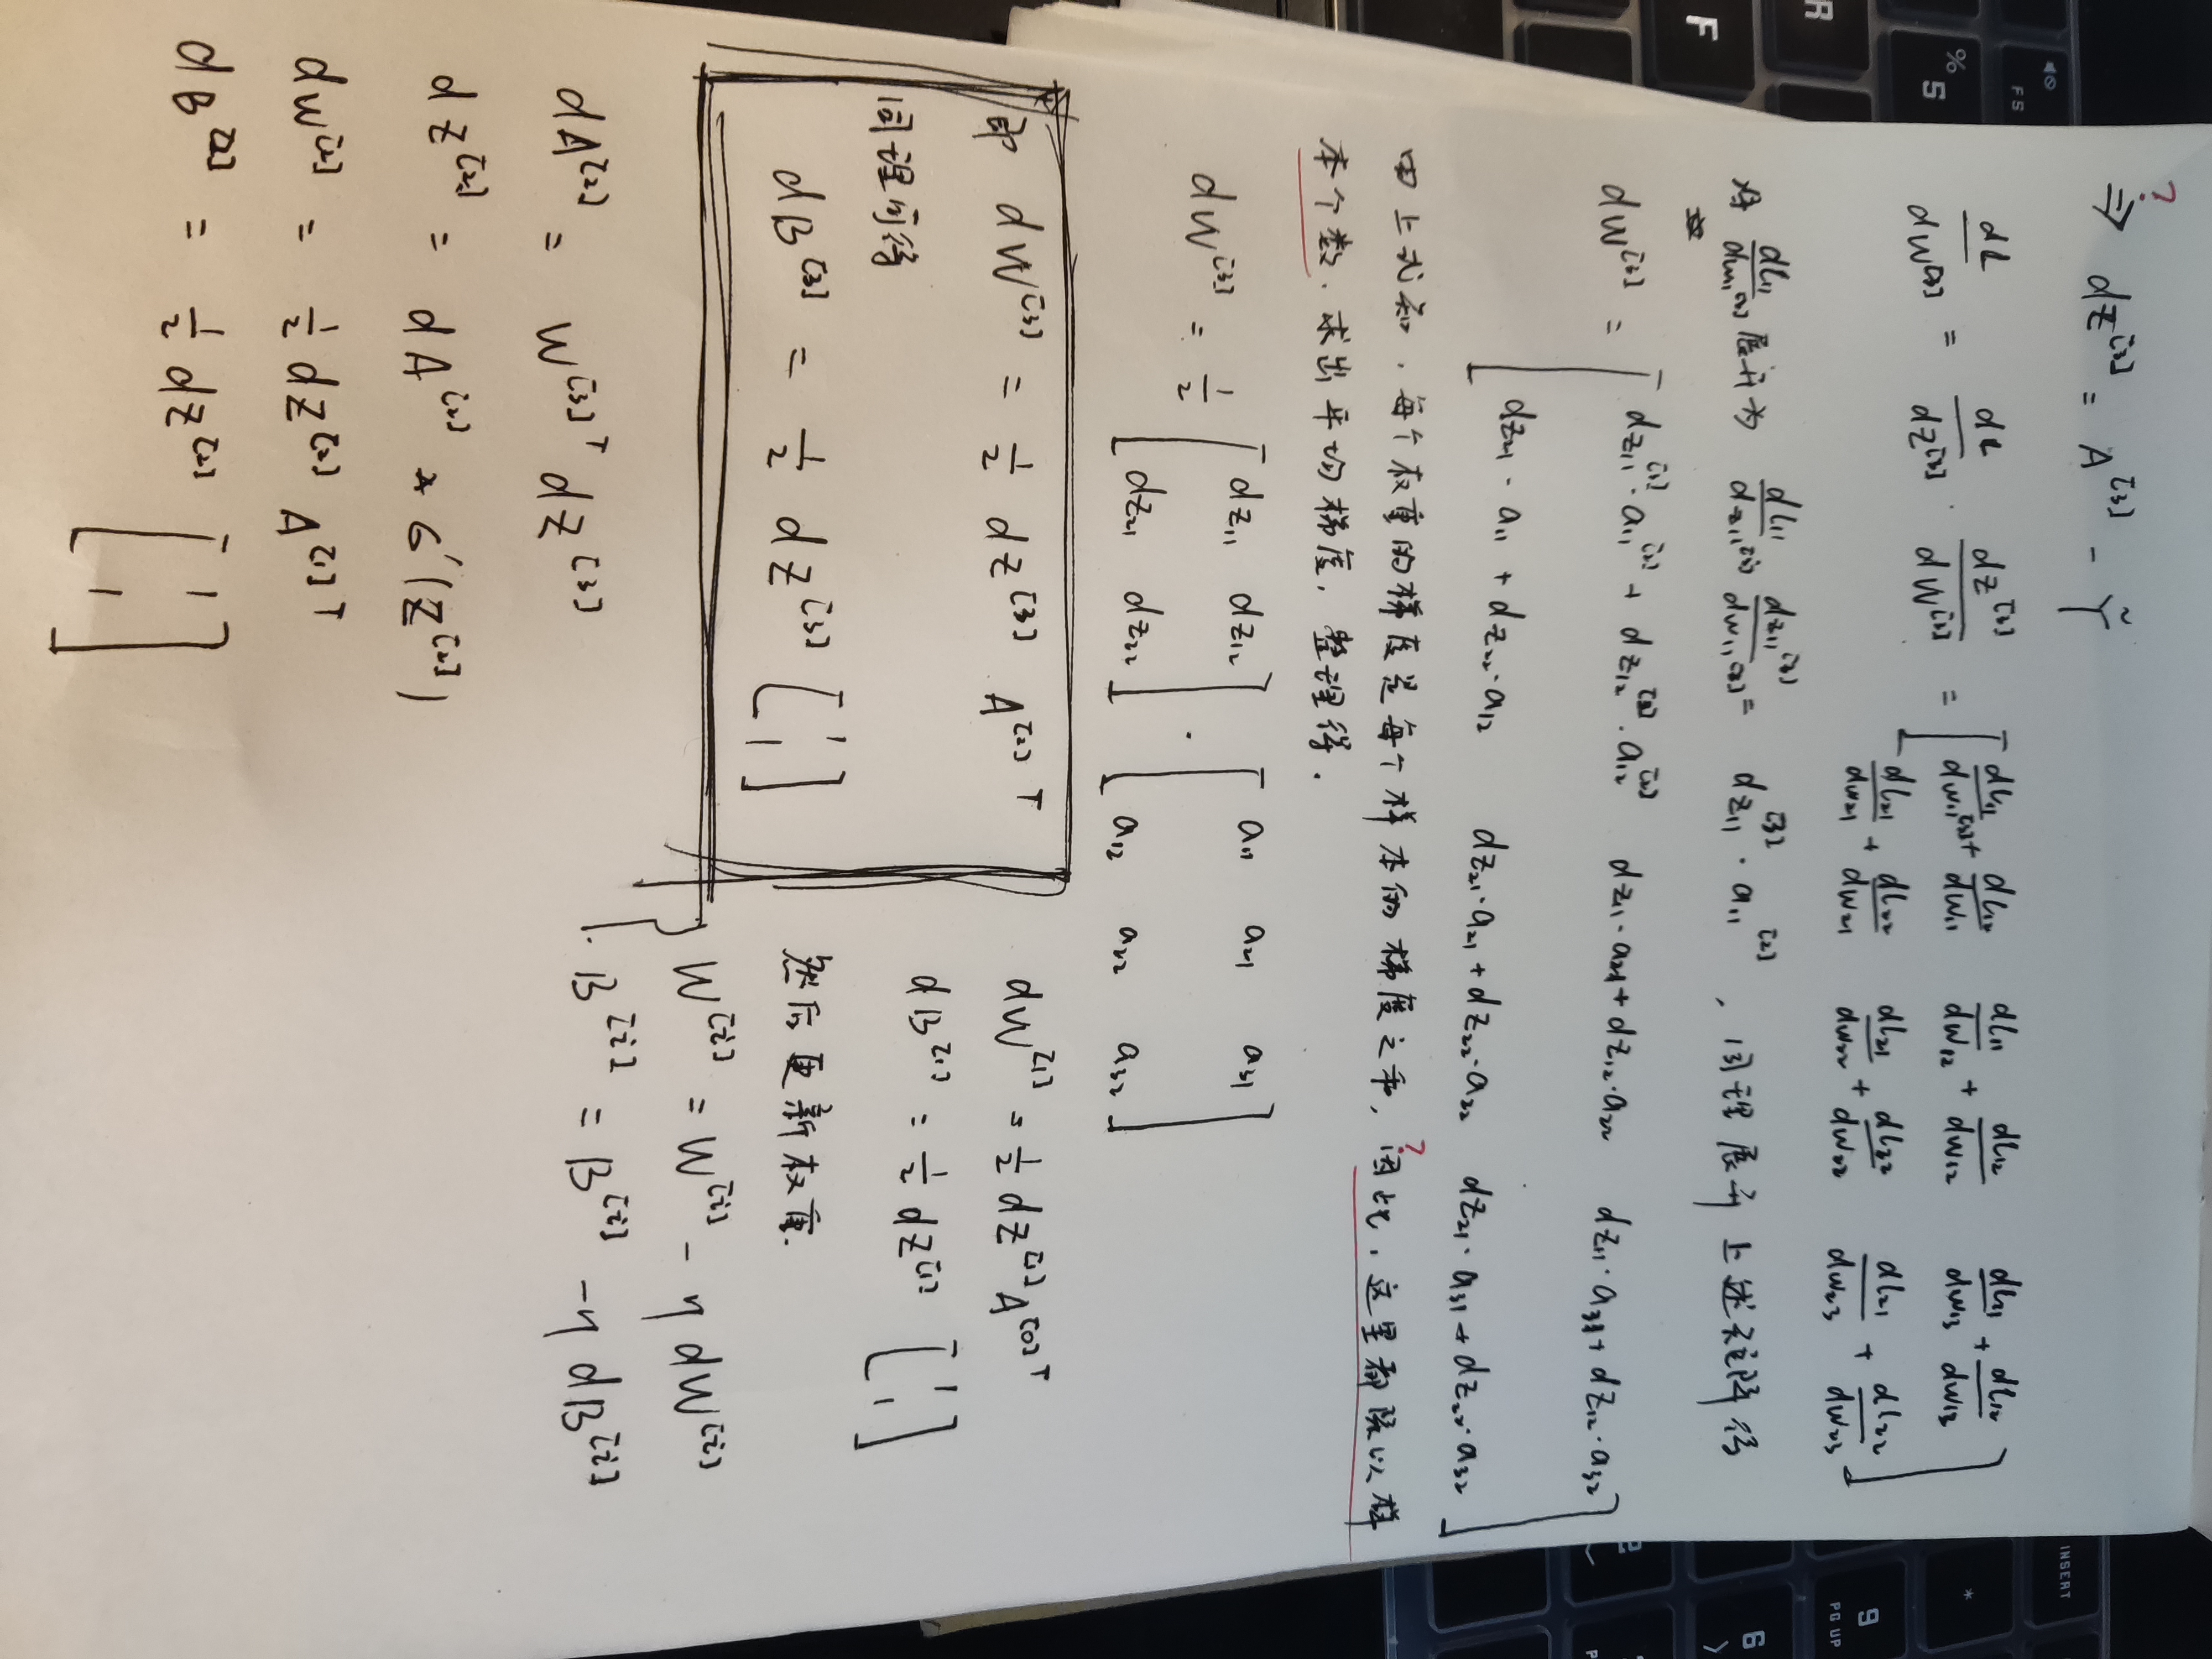 ?
⇒ dZ^[3] = A^[3] - Ỹ
dL/dW^[3] = dL/dZ^[3] · dZ^[3]/dW^[3] = [ dL11/dw11^[3] + dL12/dw11 dL11/dw12 + dL12/dw12 dL11/dw13 + dL12/dw13
dL21/dw21 + dL22/dw21 dL21/dw22 + dL22/dw22 dL21/dw23 + dL22/dw23 ]
将 dL11/dw11^[3] 展开为 dL11/dz11^[3] dz11^[3]/dw11^[3] = dz11^[3] · a11^[2] , 同理展开上述矩阵得
dW^[3] = [ dz11^[3] · a11^[2] + dz12^[3] · a12^[2] dz11 · a21 + dz12 · a22 dz11 · a31 + dz12 · a32
dz21 · a11 + dz22 · a12 dz21 · a21 + dz22 · a22 dz21 · a31 + dz22 · a32 ]
?
由上式知，每个权重的梯度是每个样本的梯度之和，因此，这里都除以样
本个数，求出平均梯度，整理得．
dW^[3] = 1/2 [ dz11 dz12 ] · [ a11 a21 a31 ]
[ dz21 dz22 ] [ a12 a22 a32 ]
即 dW^[3] = 1/2 dZ^[3] A^[2]T
同理可得
dB^[3] = 1/2 dZ^[3] [ 1
1 ]
dA^[2] = W^[3]T dZ^[3]
dZ^[2] = dA^[2] * σ'(Z^[2])
dW^[2] = 1/2 dZ^[2] A^[1]T
dB^[2] = 1/2 dZ^[2] [ 1
1 ]
dW^[1] = 1/2 dZ^[1] A^[0]T
dB^[1] = 1/2 dZ^[1] [ 1
1 ]
然后更新权重．
{ W^[i] = W^[i] - η dW^[i]
B^[i] = B^[i] - η dB^[i]
R
F
%
5
F5
INSERT
*
9
PG UP
6